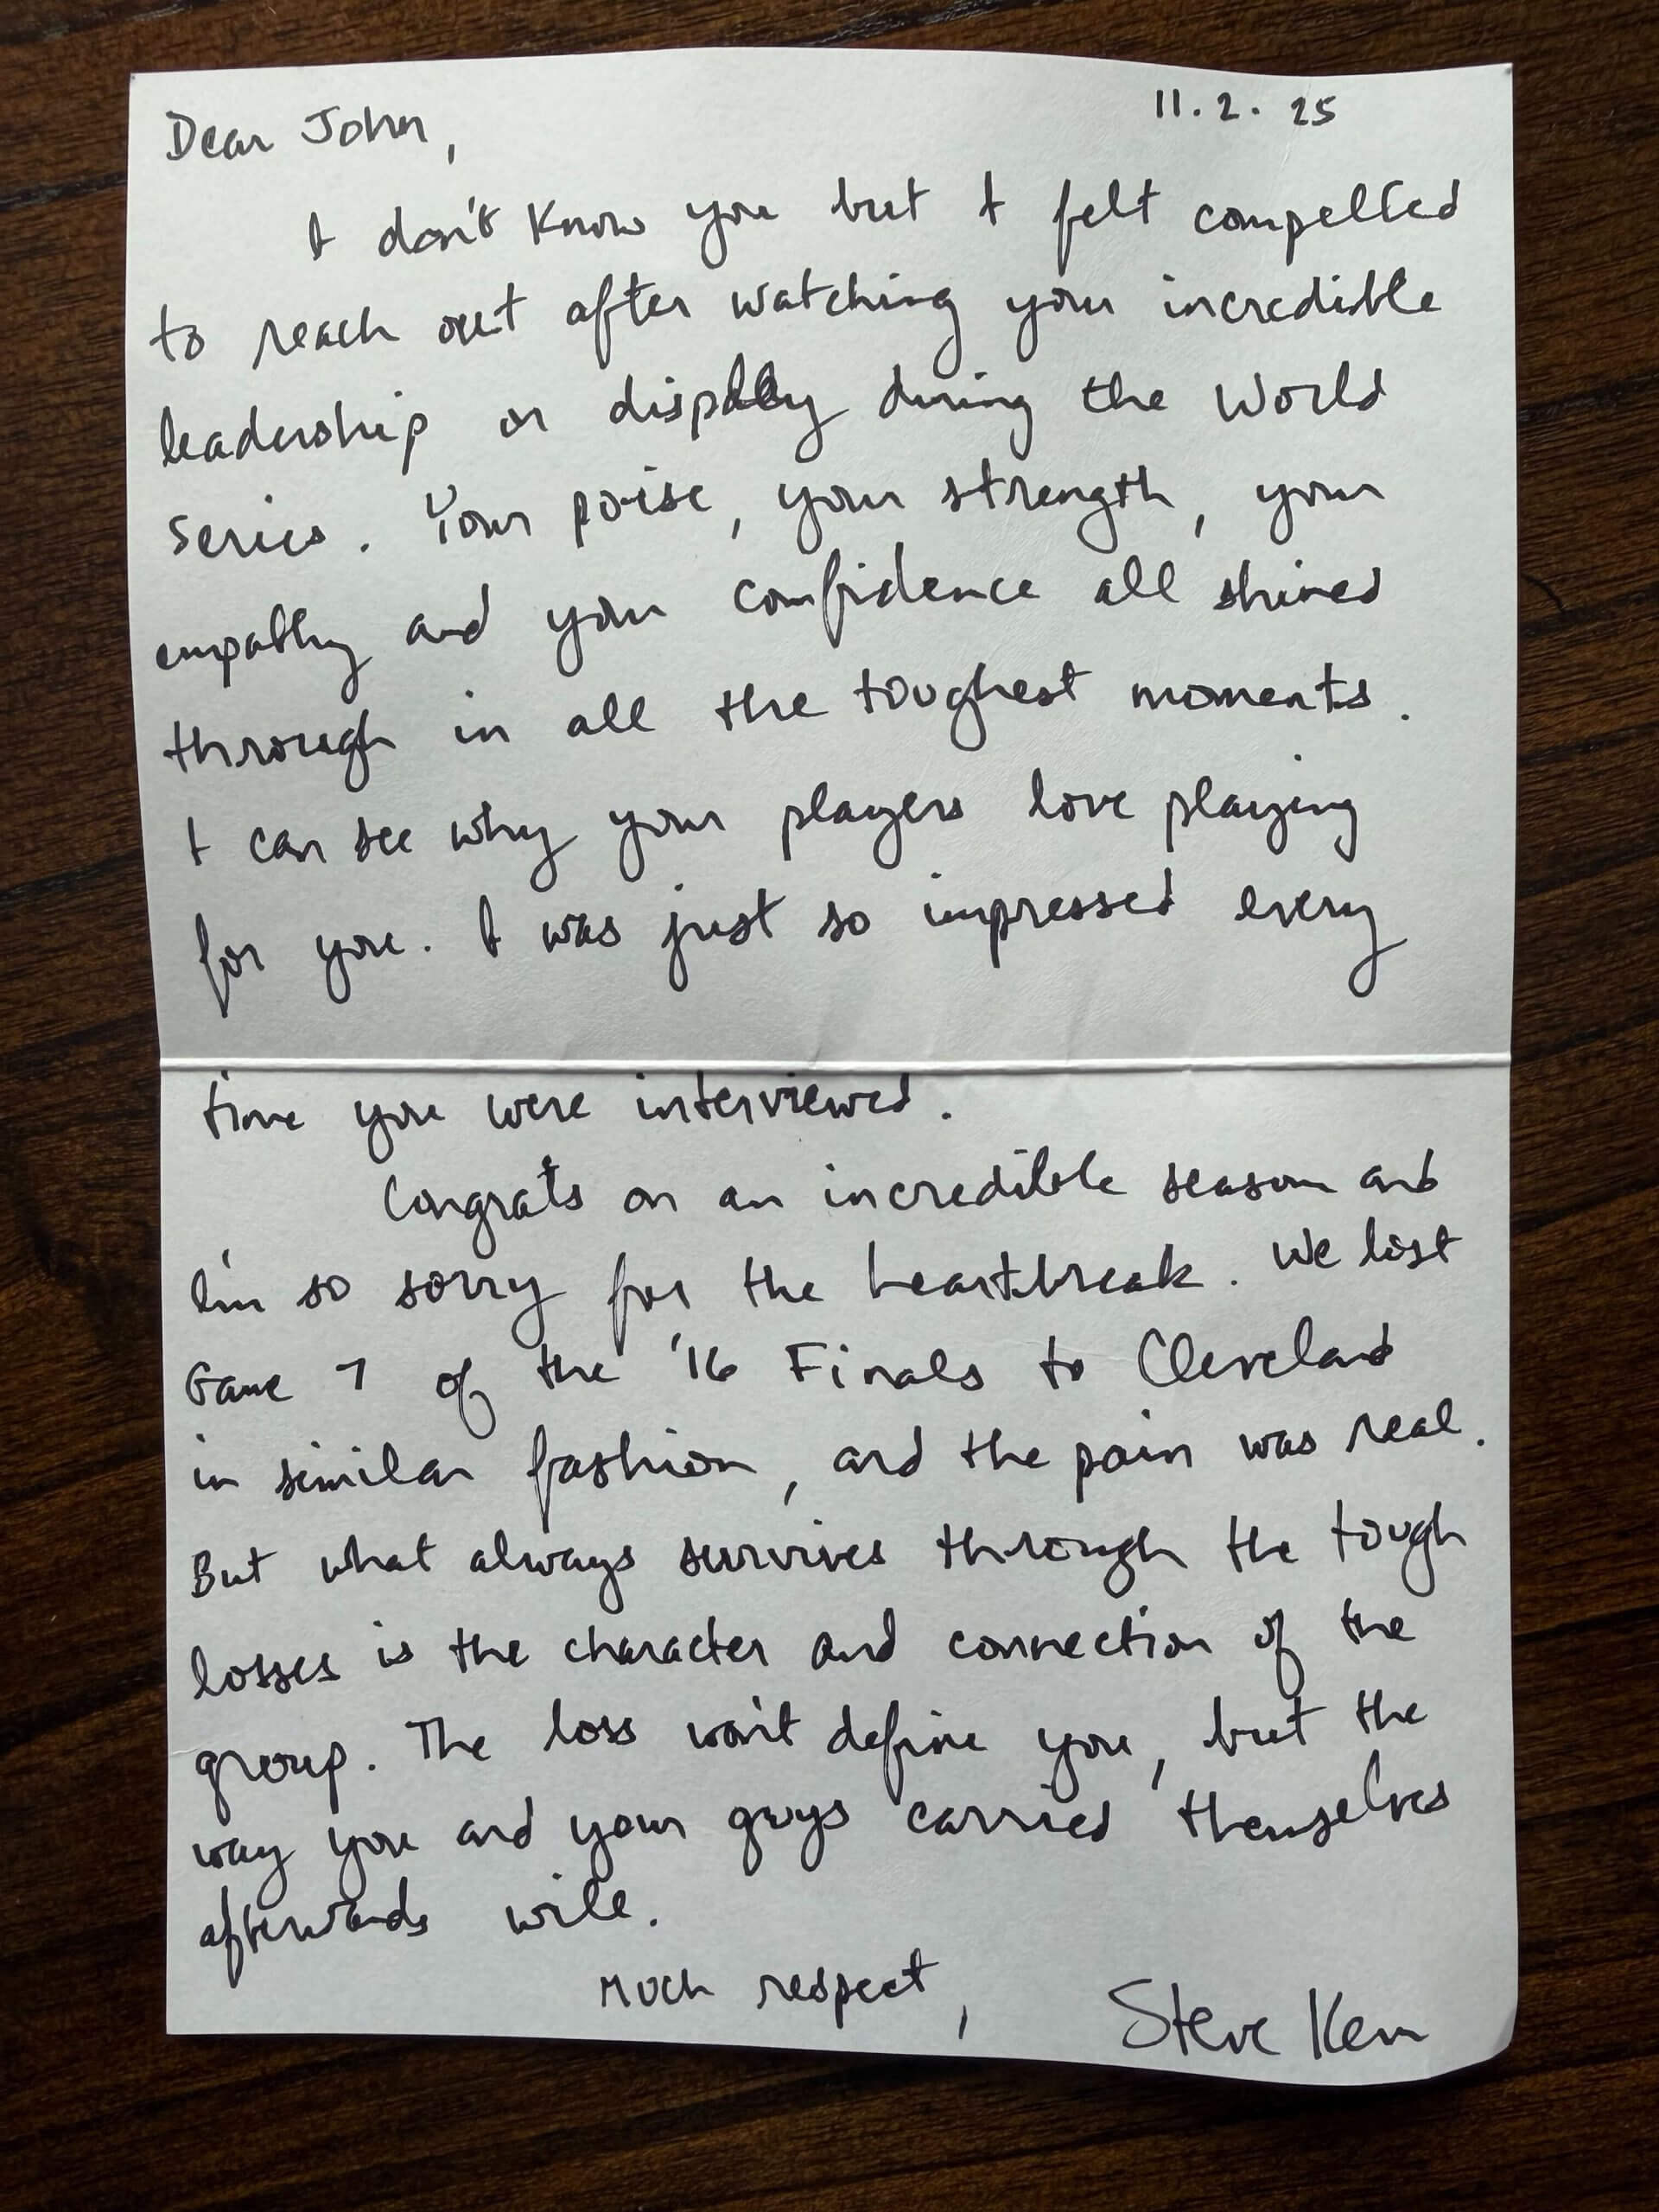 11.2.25
Dear John,
I don't know you but I felt compelled
to reach out after watching your incredible
leadership on display during the World
Series. Your poise, your strength, your
empathy and your confidence all shined
through in all the toughest moments.
I can see why your players love playing
for you. I was just so impressed every
time you were interviewed.
Congrats on an incredible season and
I'm so sorry for the heartbreak. We lost
Game 7 of the '16 Finals to Cleveland
in similar fashion, and the pain was real.
But what always survives through the tough
losses is the character and connection of the
group. The loss won't define you, but the
way you and your guys carried themselves
afterwards will.
Much respect,
Steve Kerr